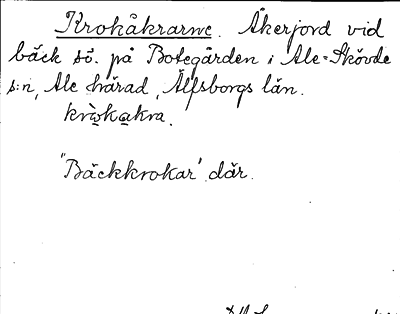 Krokåkrarne. Åkerjord vid
bäck sö. på Botegården i Ale-Skövde
s:n, Ale härad, Älfsborgs län.
krὼkakra.
"Bäckkrokar" där.